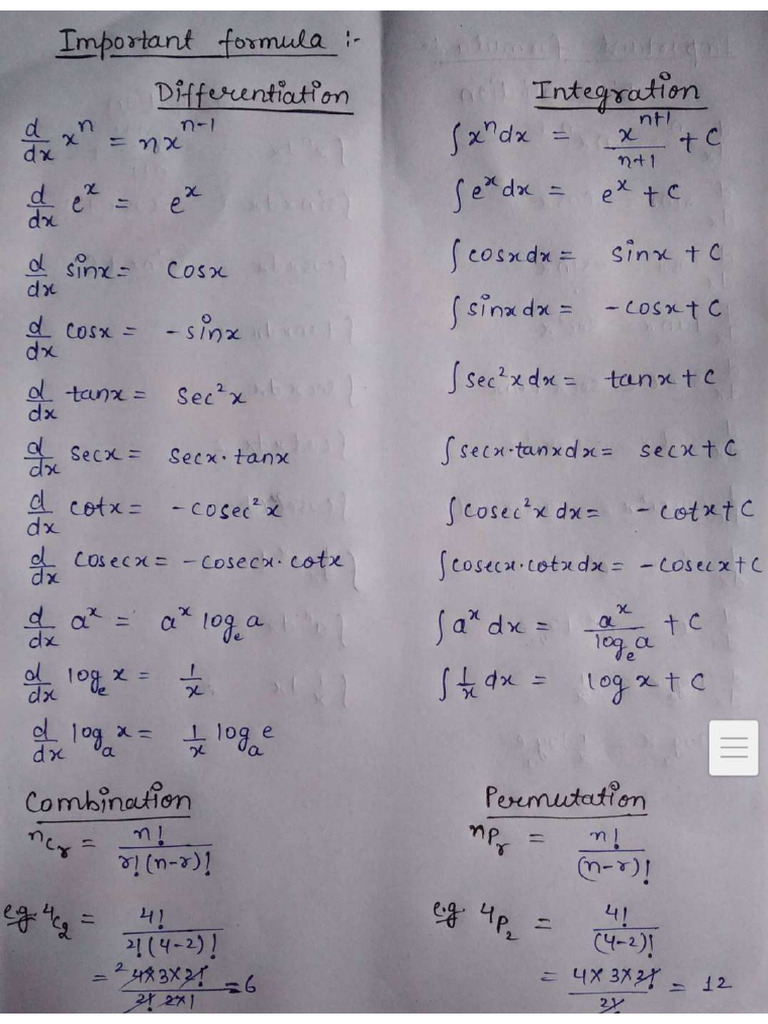 Important formula :-
Differentiation
d/dx xⁿ = nxⁿ⁻¹
d/dx eˣ = eˣ
d/dx sinx = cosx
d/dx cosx = -sinx
d/dx tanx = sec²x
d/dx secx = secx·tanx
d/dx cotx = -cosec²x
d/dx cosecx = -cosecx·cotx
d/dx aˣ = aˣ logₑa
d/dx logₑx = 1/x
d/dx logₐx = 1/x logₐe
Integration
∫xⁿdx = xⁿ⁺¹/n+1 + C
∫eˣdx = eˣ + C
∫cosxdx = sinx + C
∫sinxdx = -cosx + C
∫sec²xdx = tanx + C
∫secx·tanxdx = secx + C
∫cosec²x dx = - cotx + C
∫cosecx·cotxdx = -cosecx + C
∫aˣ dx = aˣ/logₑa + C
∫1/x dx = logx + C
Combination
ⁿCᵣ = n!/r!(n-r)!
e.g. ⁴C₂ = 4!/2!(4-2)!
= ²4×3×2!/2! 2×1 = 6
Permutation
ⁿPᵣ = n!/(n-r)!
e.g. 4P₂ = 4!/(4-2)!
= 4×3×2!/2! = 12